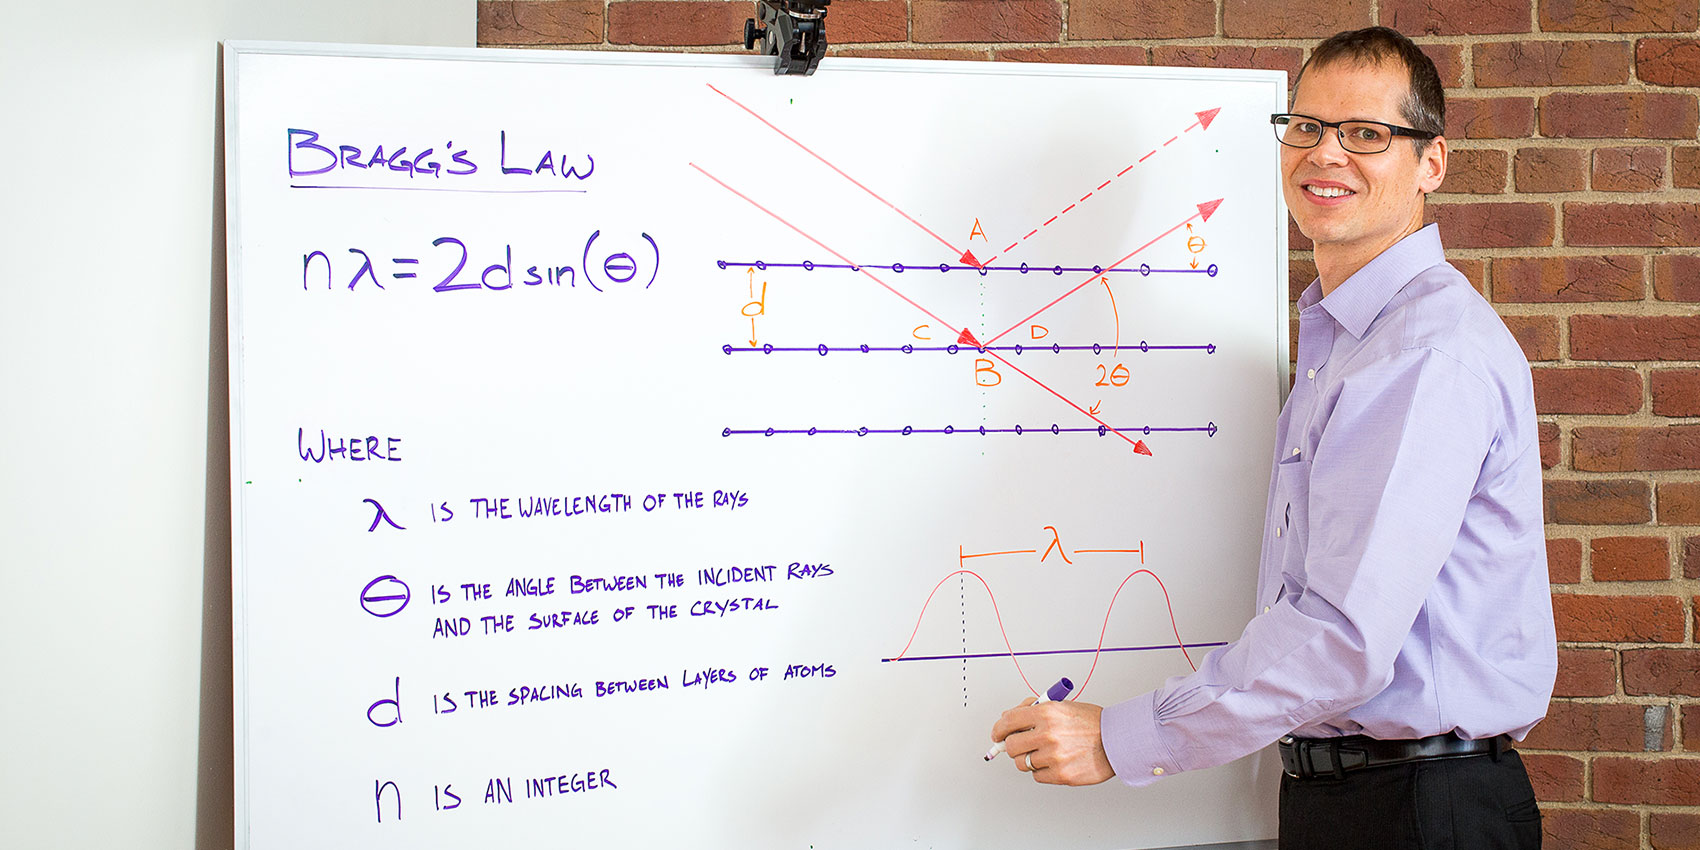 BRAGG'S LAW
nλ=2d sin(θ)
WHERE
λ IS THE WAVELENGTH OF THE RAYS
θ IS THE ANGLE BETWEEN THE INCIDENT RAYS
AND THE SURFACE OF THE CRYSTAL
d IS THE SPACING BETWEEN LAYERS OF ATOMS
n IS AN INTEGER
A
θ
d
C
D
B
2θ
λ